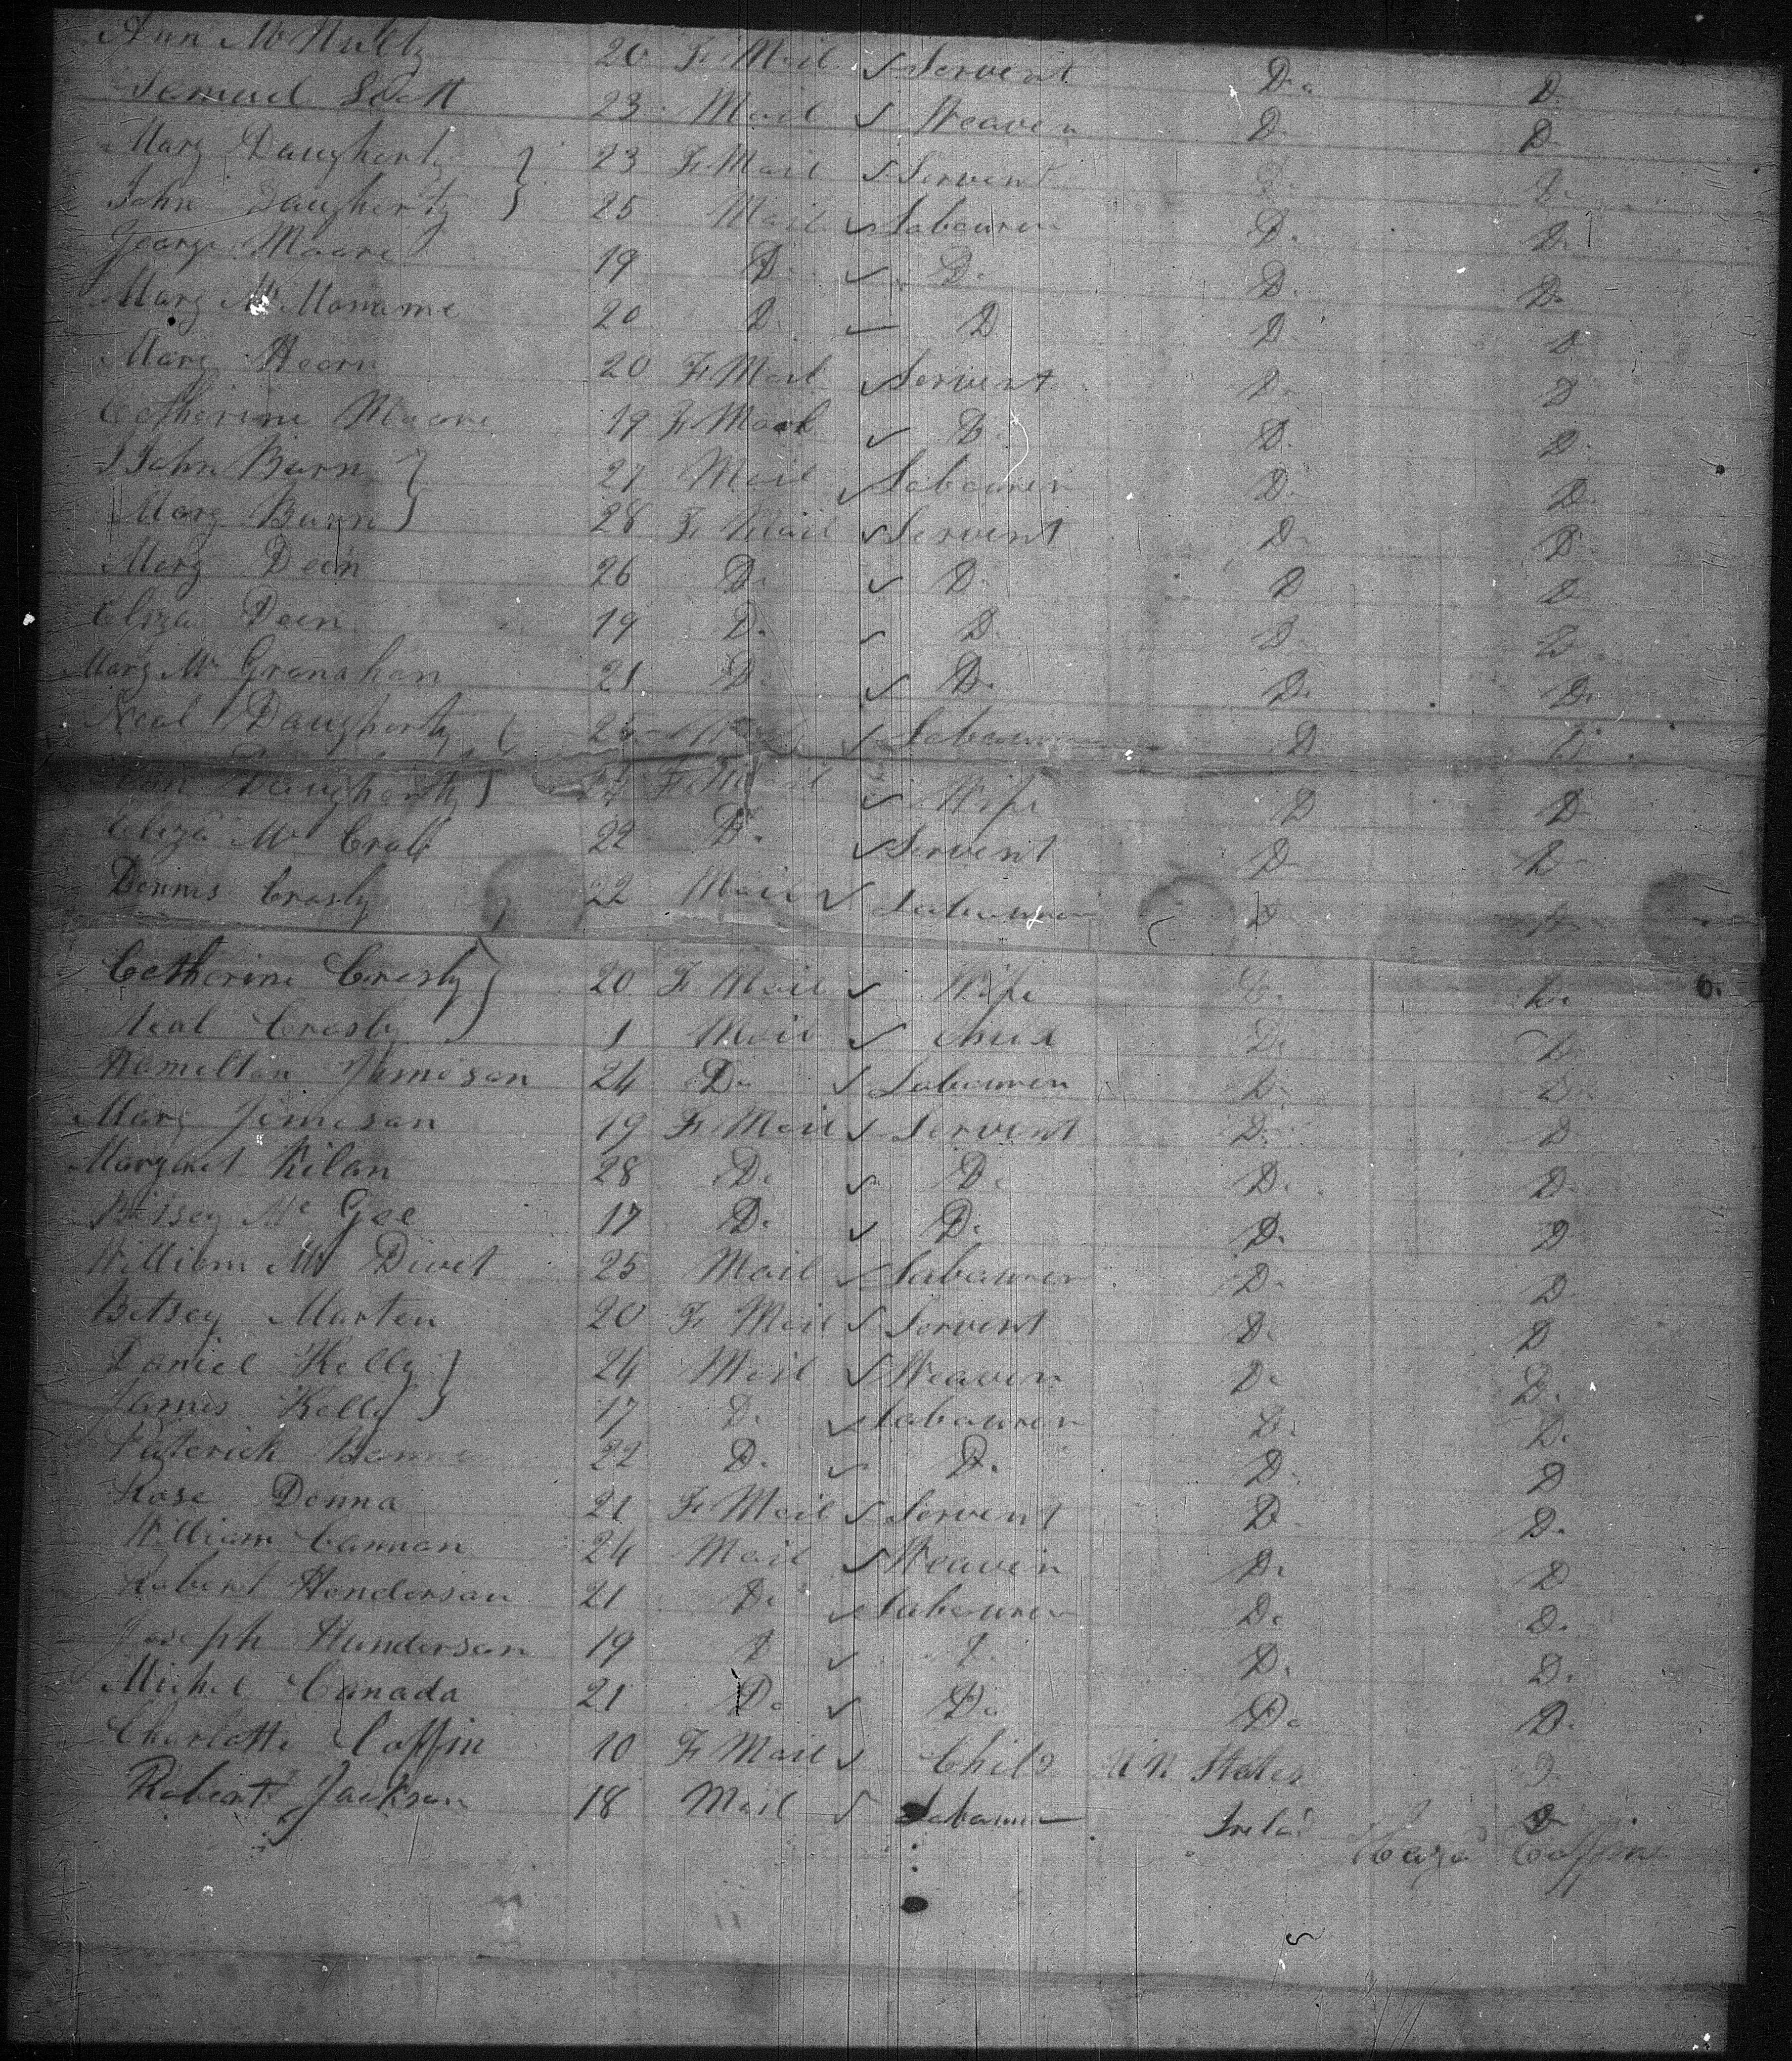 Ann McNulty 20 FeMail ✓ Servent Do Do
Semuel Scott 23 Mail ✓ Weaver Do Do
Mary Daugherty } 23 FeMail ✓ Servent Do Do
John Daugherty } 25 Mail ✓ Labourer Do Do
George Moore 19 Do ✓ Do Do Do
Mary Mc 20 Do ✓ Do Do Do
Mary Hearn 20 FeMail ✓ Servent Do Do
Catherine Moore 19 FeMail ✓ Do Do Do
John Burn } 27 Mail ✓ Labourer Do Do
Mary Burn } 28 FeMail ✓ Servent Do Do
Mary Deen 26 Do ✓ Do Do Do
Eliza Deen 19 Do ✓ Do Do Do
Mary Mc Granahan 21 Do ✓ Do Do Do
Neal Daugherty 25 ✓ Labourer Do Do
Ann Daugherty } FeMail ✓ Wife Do Do
Eliza Mc 22 Do ✓ Servent Do Do
Dennis Crosby 22 Mail ✓ Labourer Do Do
Catherine Crosby } 20 FeMail ✓ Wife Do Do
Neal Crosby 1 Mail ✓ Child Do Do
Hamelton Jimeson 24 Do ✓ Labourer Do Do
Mary Jimeson 19 FeMail ✓ Servent Do Do
Margaret Kilan 28 Do ✓ Do Do Do
Betsey Mc Gee 17 Do ✓ Do Do Do
William Mc Divet 25 Mail ✓ Labourer Do Do
Betsey Marten 20 FeMail ✓ Servent Do Do
Daniel Kelly } 24 Mail ✓ Weaver Do Do
James Kelly } 17 Do ✓ Labourer Do Do
Paterick 22 Do ✓ Do Do Do
Rose Donna 21 FeMail ✓ Servent Do Do
William Cannon 24 Mail ✓ Weaver Do Do
Robert Henderson 21 Do ✓ Labourer Do Do
Joseph Henderson 19 Do ✓ Do Do Do
Michel Canada 21 Do ✓ Do Do Do
Charlotte Coffin 10 FeMail ✓ Child UN States Do
Robert Jackson 18 Mail ✓ Labourer Irela Do
Coffin